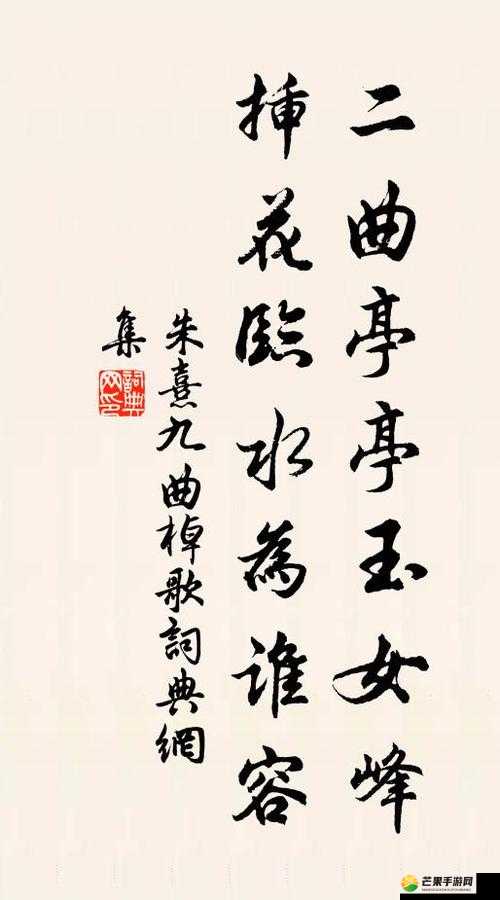 二曲亭亭玉女峰
挿花臨水為誰容
朱熹九曲棹歌詞典網
集
詞典
网印
芒果手游网